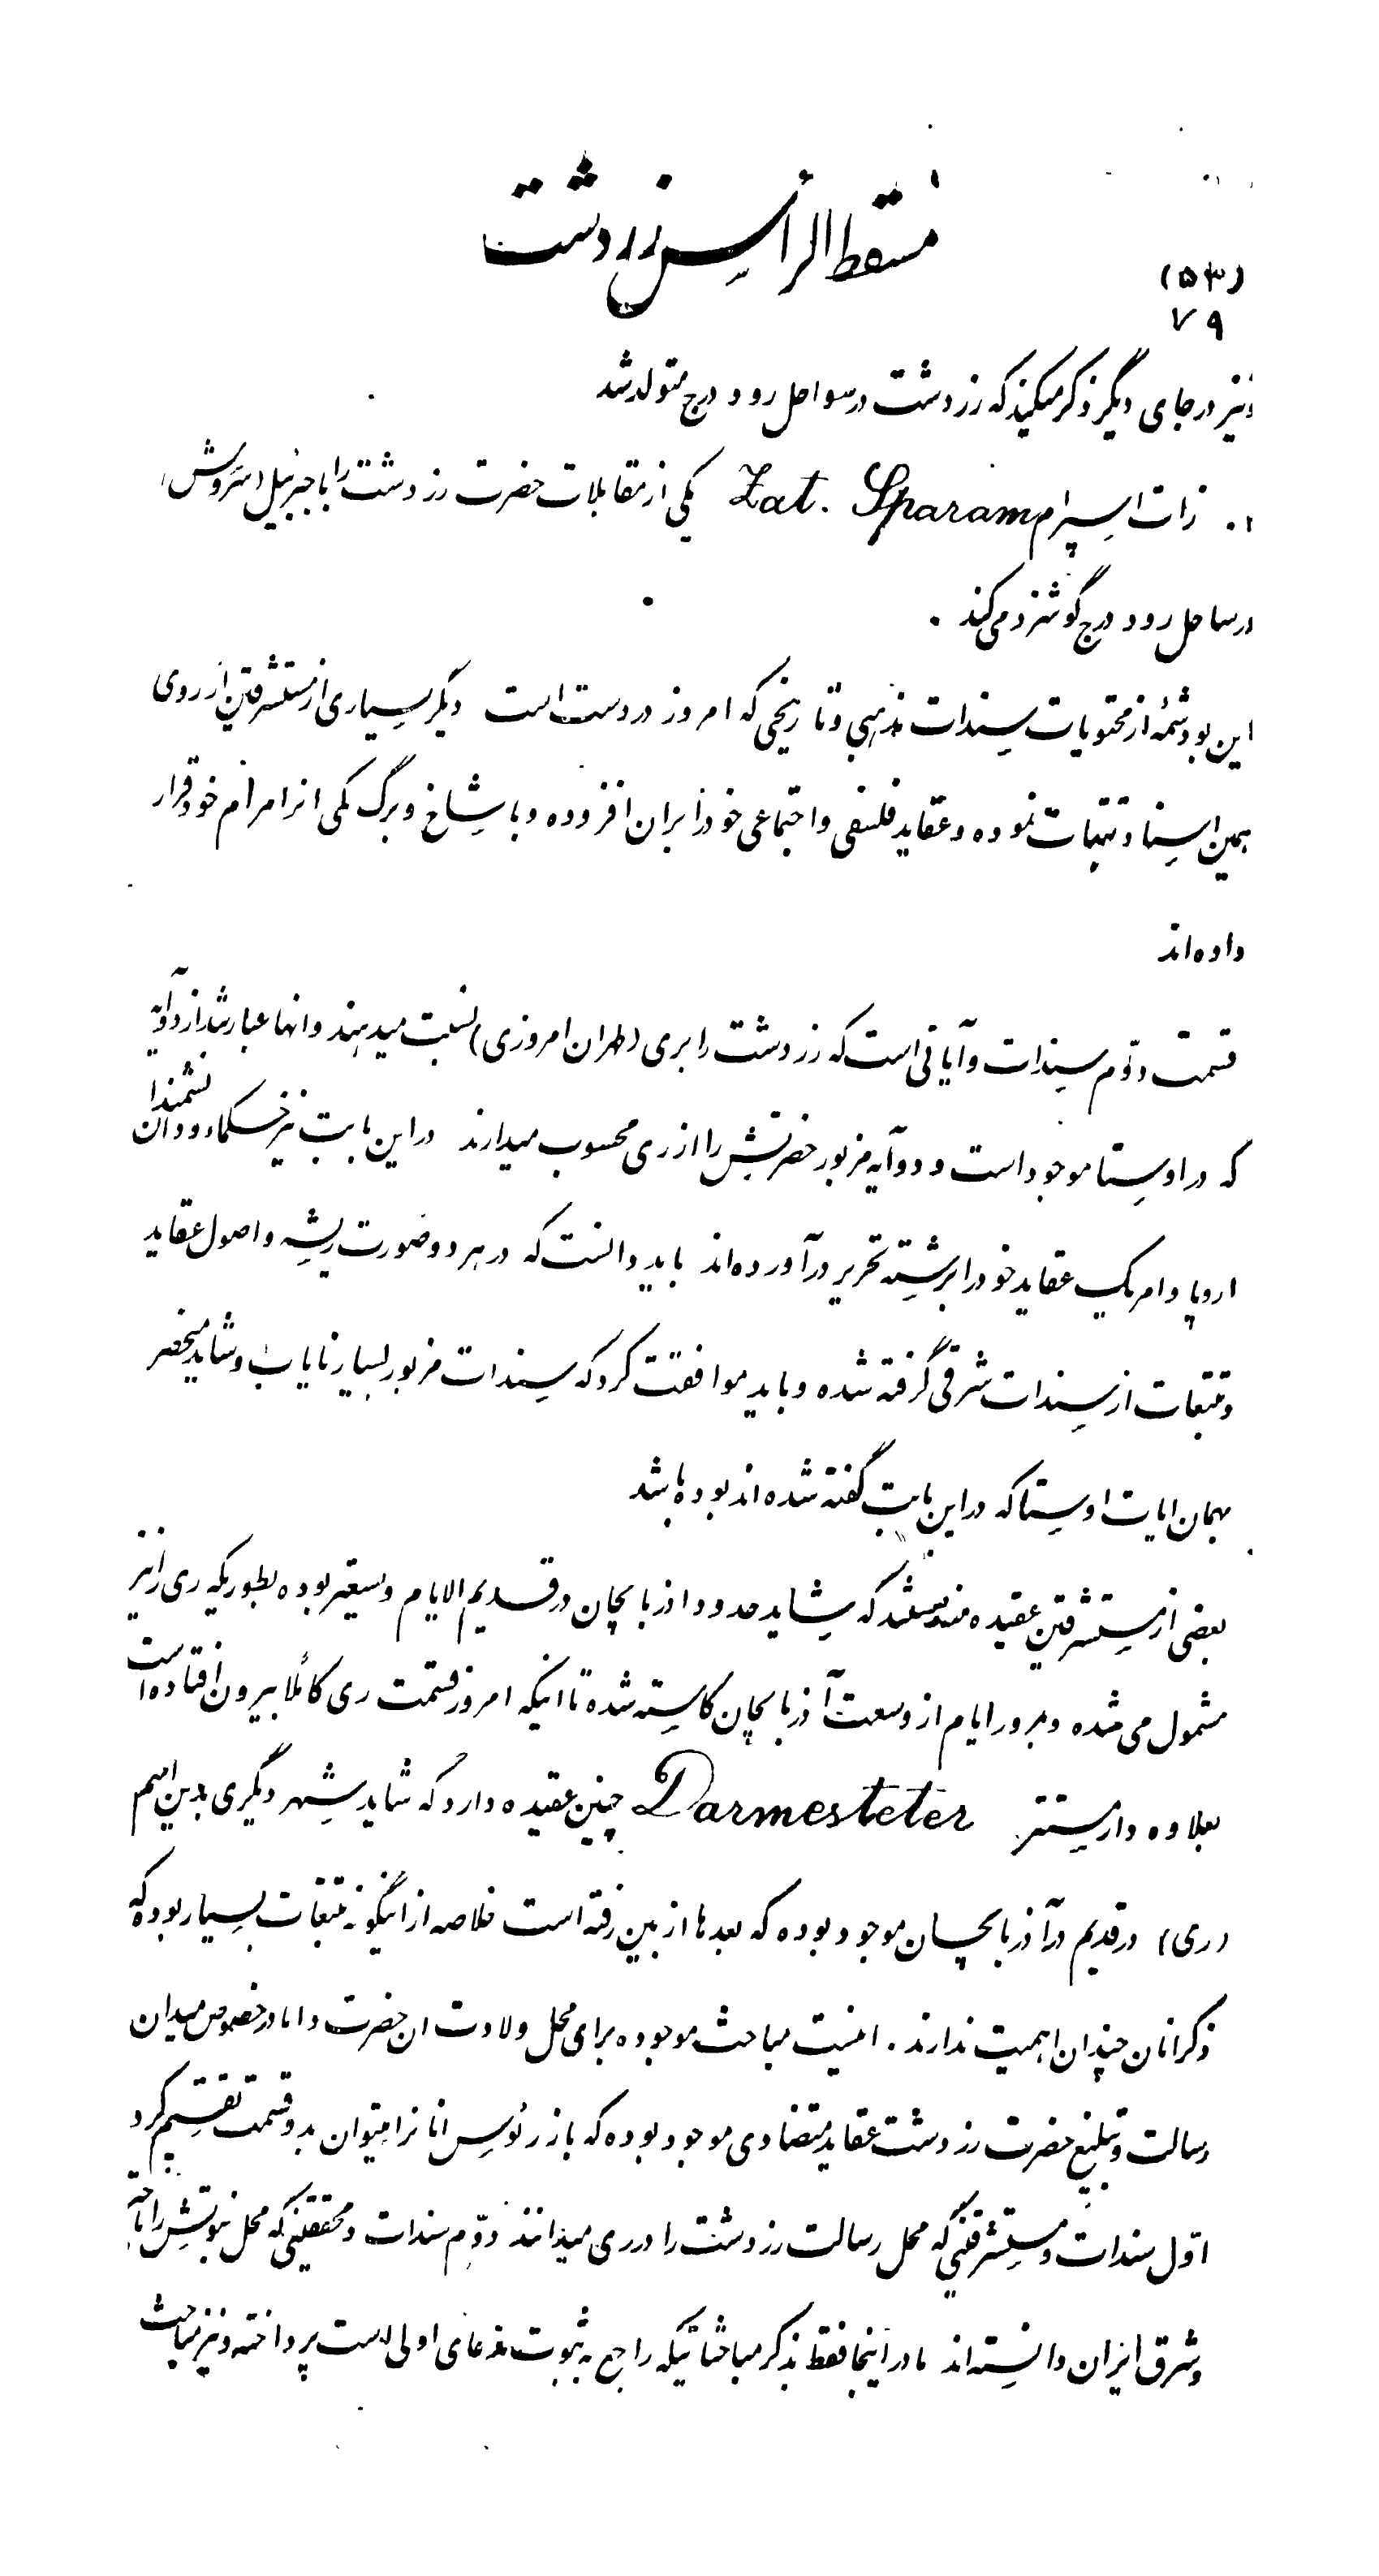 مسقط الرأس زردشت
(۵۳)
۷۹
و نیز در جای دیگر ذکر میکند که زردشت در سواحل رود درج متولد شد
۱۰ زات اسپرام Zat. Sparam یکی از مقابلات حضرت زردشت را با جبرئیل (سروش)
در ساحل رود درج گوشزد می کند .
این بود شمه از محتویات سندات مذهبی و تاریخی که امروز در دست است دیگر بسیاری از مستشرقین از روی
همین اسناد تتبعات نموده و عقاید فلسفی و اجتماعی خود را بران افزوده و با شاخ و برگ یکی انرا مرام خود قرار
داده اند
قسمت دوم سندات و آیاتی است که زردشت را بری (طهران امروزی) نسبت میدهند و انها عبارتند از دو آیه
که در اوستا موجود است و دو آیه مزبور حضرتش را از ری محسوب میدارند در این بابت نیز حکماء و دانشمندان
اروپا و امریک عقاید خود را برشته تحریر در آورده اند باید دانست که در هر دو صورت ریشه و اصول عقاید
و تتبعات از سندات شرقی گرفته شده و باید موافقت کرد که سندات مزبور بسیار نایاب و شاید منحصر
بهمان ایات اوستا که در این بابت گفته شده اند بوده باشد
بعضی از مستشرقین عقیده مند هستند که شاید حدود اذربایجان در قدیم الایام وسیعتر بوده بطوریکه ری را نیز
مشمول می شده و بمرور ایام از وسعت آذربایجان کاسته شده تا اینکه امروز قسمت ری کاملا بیرون افتاده است
بعلاوه دارمستتر Darmesteter چنین عقیده دارد که شاید شهر دیگری بدین اسم
(ری) در قدیم در آذربایجان موجود بوده که بعدها از بین رفته است خلاصه از اینگونه تتبعات بسیار بوده که
ذکر انان چندان اهمیت ندارند . اینست مباحث موجوده برای محل ولادت ان حضرت و اما در خصوص میدان
رسالت و تبلیغ حضرت زردشت عقاید متضادی موجود بوده که باز رئوس انانرا میتوان بدو قسمت تقسیم کرد
اوّل سندات و مستشرقینی که محل رسالت زردشت را در ری میدانند دوّم سندات و محققینی که محل نبوتش را باختر
و شرق ایران دانسته اند ما در اینجا فقط بذکر مباحثاتیکه راجع به ثبوت مدعای اولی است پرداخته و نیز مباحث